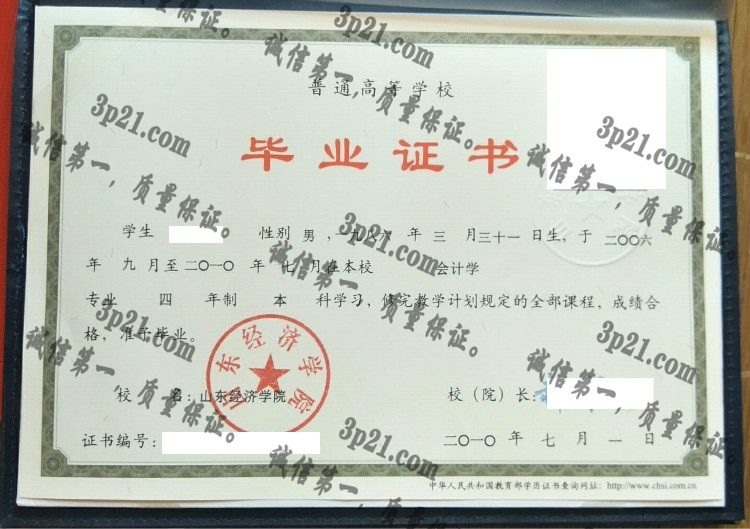 普通高等学校
毕业证书
学生 性别 男 ，一九八六 年 三 月三十一日生，于 二〇〇六
年 九 月至 二〇一〇 年 七 月在本校 会计学
专业 四 年制 本 科学习，修完教学计划规定的全部课程，成绩合
格，准予毕业。
山东经济学院
校 名：山东经济学院 校（院）长：
证书编号： 二〇一〇 年 七 月 一 日
中华人民共和国教育部学历证书查询网址：http://www.chsi.com.cn
3p21.com
诚信第一，质量保证。
3p21.com
诚信第一，质量保证。
3p21.com
诚信第一，质量保证。
3p21.com
诚信第一，质量保证。
3p21.com
诚信第一，质量保证。
3p21.com
诚信第一，质量保证。
3p21.com
诚信第一，质量保证。
3p21.com
诚信第一，质量保证。